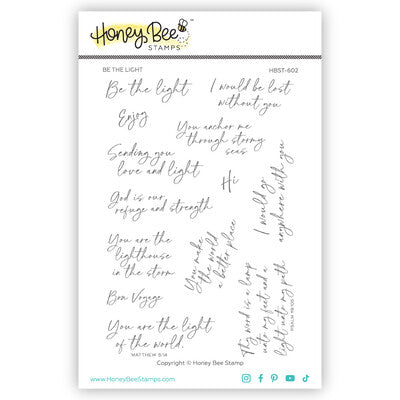 Honey Bee
STAMPS
BE THE LIGHT
HBST-602
Be the light
I would be lost
without you
Enjoy
You anchor me
through stormy
seas
Sending you
love and light
Hi
I would go
anywhere with you
God is our
refuge and strength
You make
the world
a better place
You are the
lighthouse
in the storm
Thy word is a lamp
unto my feet and a
light unto my path
PSALM 119:105
Bon Voyage
You are the light
of the world.
MATTHEW 5:14
Copyright © Honey Bee Stamp
www.HoneyBeeStamps.com